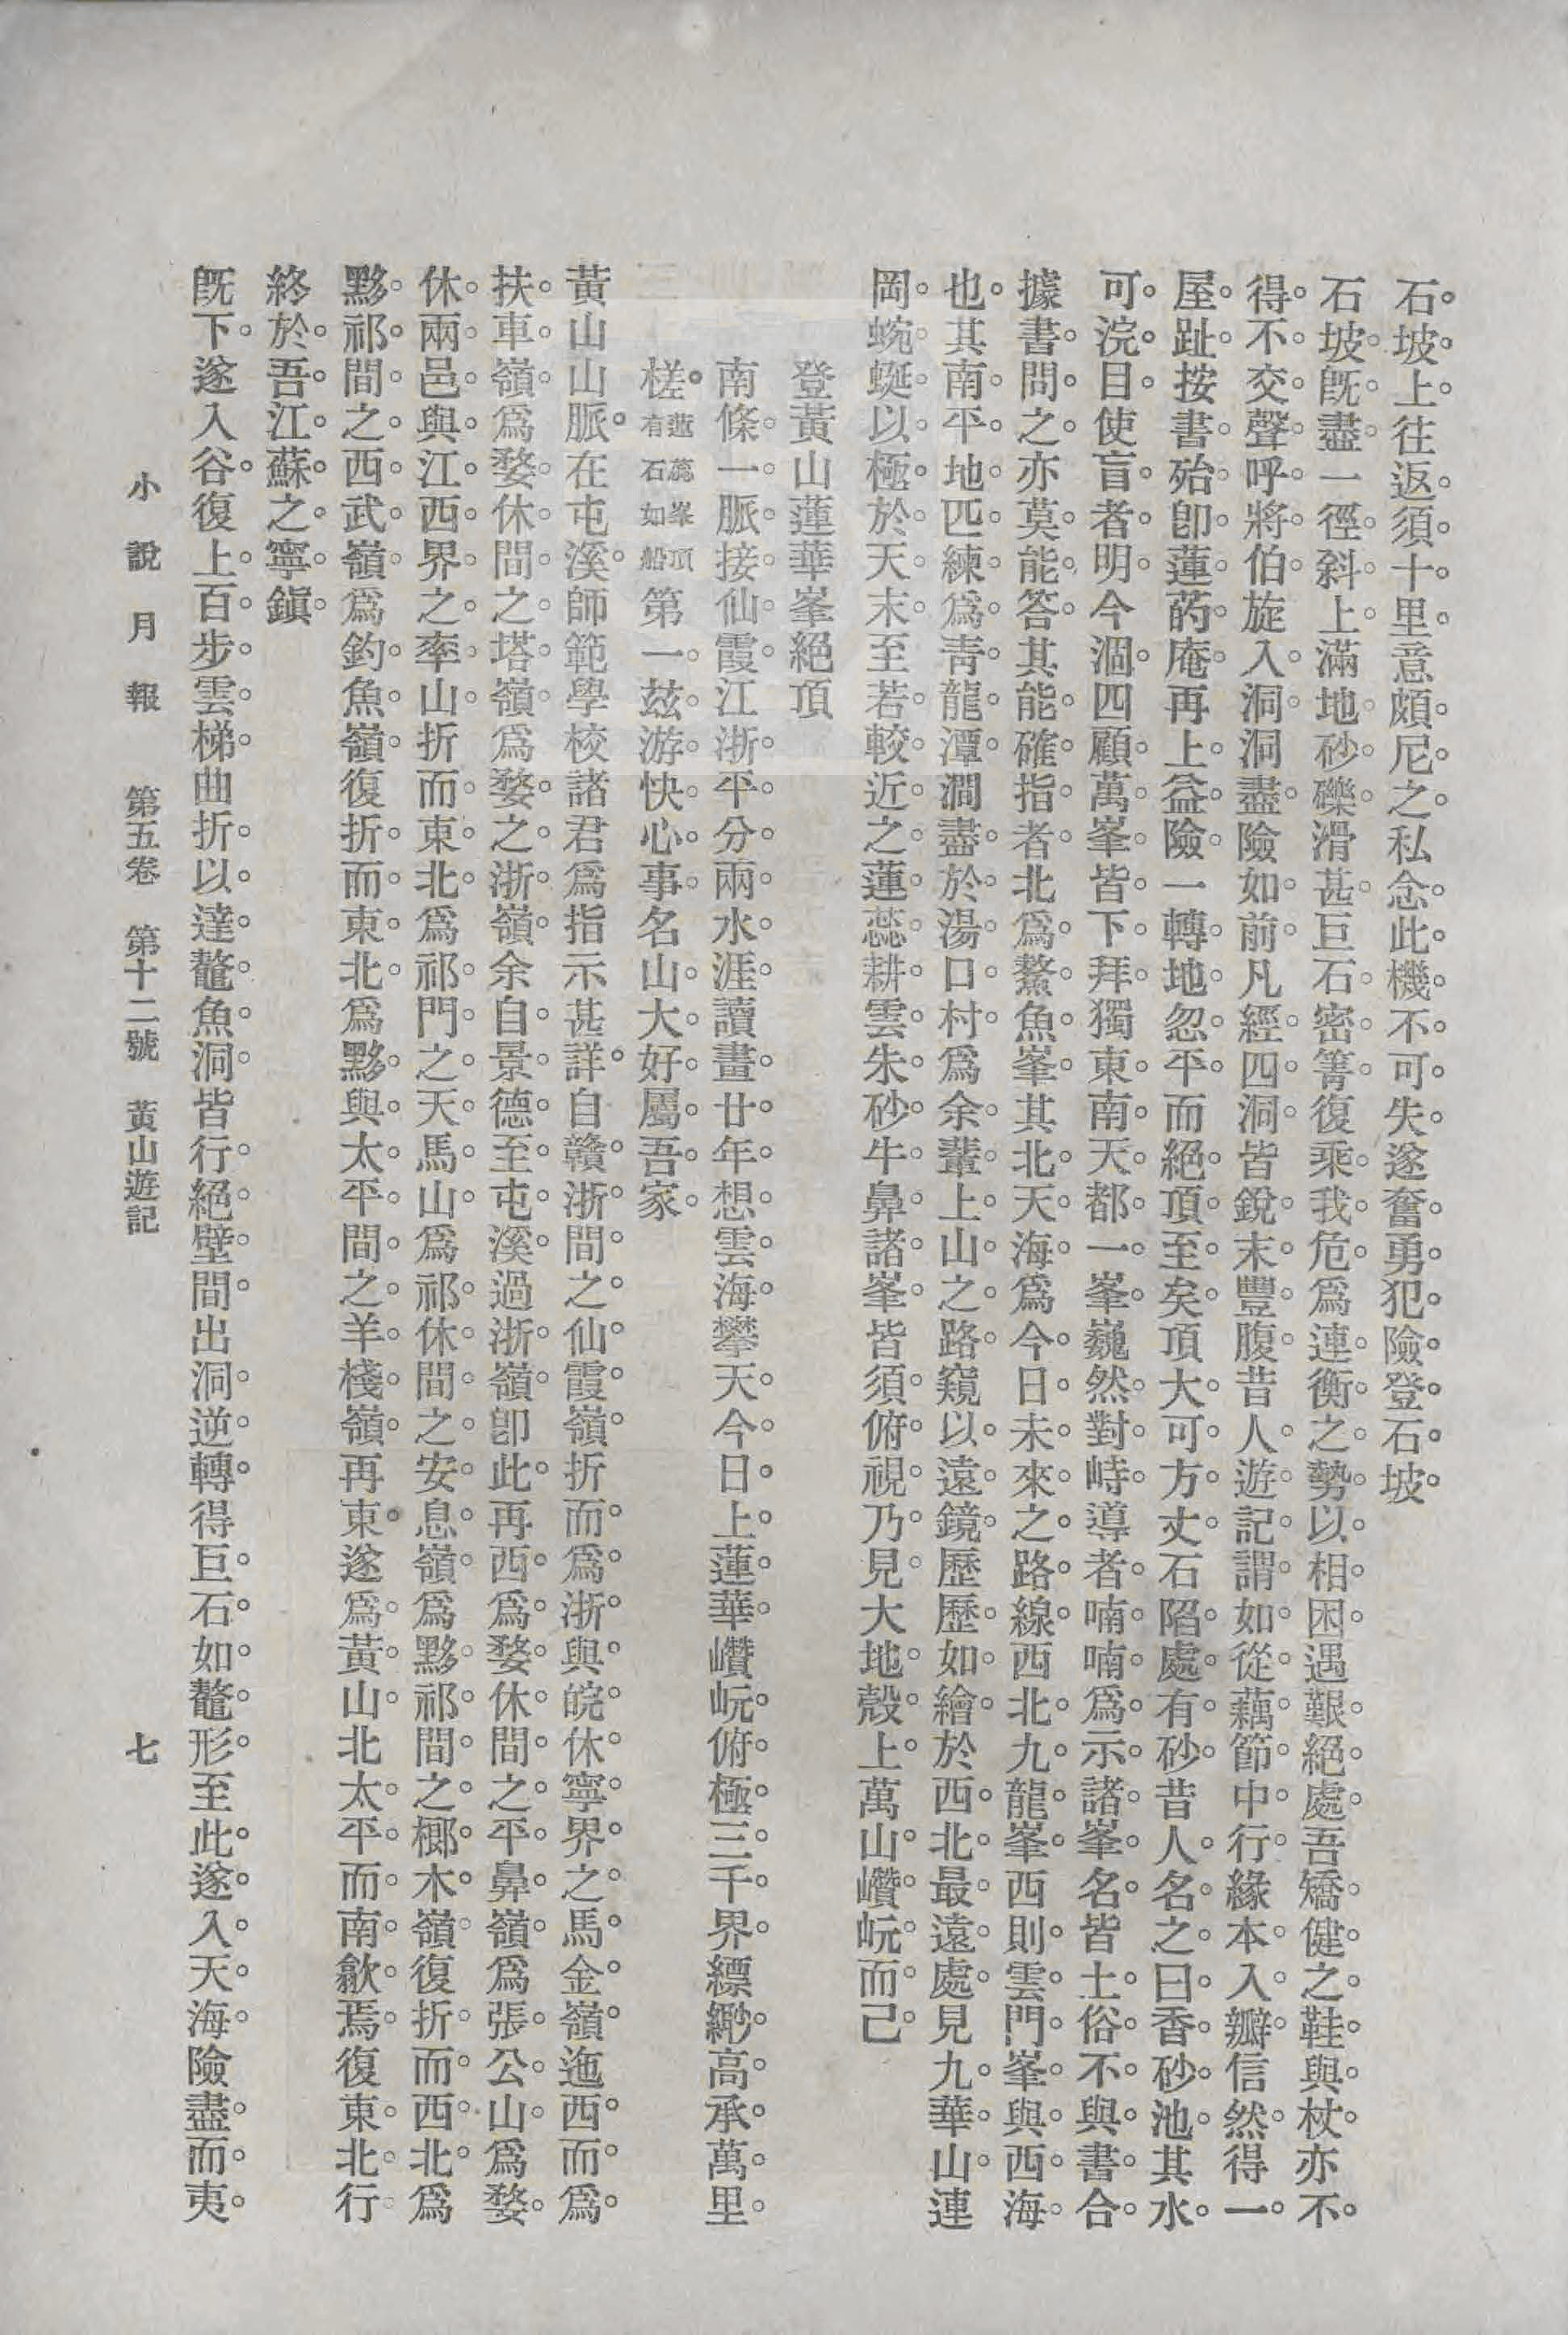 石坡上往返須十里意頗尼之私念此機不可失遂奮勇犯險登石坡
石坡既盡一徑斜上滿地砂礫滑甚巨石密箐復乘我危爲連衡之勢以相困遇艱絕處吾矯健之鞋與杖亦不
得不交聲呼將伯旋入洞洞盡險如前凡經四洞皆銳末豐腹昔人遊記謂如從藕節中行緣本入瓣信然得一
屋趾按書殆卽蓮菂庵再上益險一轉地忽平而絕頂至矣頂大可方丈石陷處有砂昔人名之曰香砂池其水
可浣目使盲者明今涸四顧萬峯皆下拜獨東南天都一峯巍然對峙導者喃喃爲示諸峯名皆土俗不與書合
據書問之亦莫能答其能確指者北爲鰲魚峯其北天海爲今日未來之路線西北九龍峯西則雲門峯與西海
也其南平地匹練爲靑龍潭澗盡於湯口村爲余輩上山之路窺以遠鏡歷歷如繪於西北最遠處見九華山連
岡蜿蜒以極於天末至若較近之蓮蕊耕雲朱砂牛鼻諸峯皆須俯視乃見大地殼上萬山巑岏而已
登黃山蓮華峯絕頂
南條一脈接仙霞江浙平分兩水涯讀畫廿年想雲海攀天今日上蓮華巑岏俯極三千界縹緲高承萬里
槎蓮蕊峯頂有石如船第一茲游快心事名山大好屬吾家
黃山山脈在屯溪師範學校諸君爲指示甚詳自贛浙間之仙霞嶺折而爲浙與皖休寧界之馬金嶺迤西而爲
扶車嶺爲婺休間之塔嶺爲婺之浙嶺余自景德至屯溪過浙嶺卽此再西爲婺休間之平鼻嶺爲張公山爲婺
休兩邑與江西界之率山折而東北爲祁門之天馬山爲祁休間之安息嶺爲黟祁間之榔木嶺復折而西北爲
黟祁間之西武嶺爲釣魚嶺復折而東北爲黟與太平間之羊棧嶺再東遂爲黃山北太平而南歙焉復東北行
終於吾江蘇之寧鎭
旣下遂入谷復上百步雲梯曲折以達鼇魚洞皆行絕壁間出洞逆轉得巨石如鼇形至此遂入天海險盡而夷
小說月報 第五卷 第十二號 黃山遊記 七